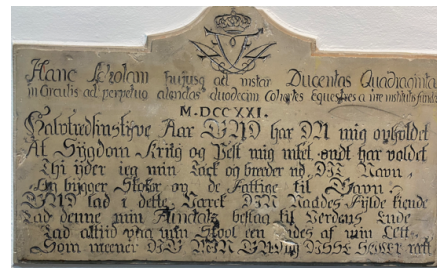 Hanc Scholam hujusq ad instar Ducentas Quadraginta
in Circulis ad perpetuo alendas duodecim Cohortes Equestres a me instituti
M·DCC XXI.
Halvtredsinstyve Aar GUD har DU mig opholdet
At Sygdom Krig og Pest mig intet ondt har voldet
Thi yder jeg min Tack og breder ud DIT Navn
Og bygger Skoler op de Fattige til Gavn
GUD lad i dette Verck DIN Naades Fylde kiende
Lad denne min Fundatz bestaa til Verdens Ende
Lad altid paa min Skool een findes af min Lett
Som meener DIG MIN GUD og DISSE SKOLER rett